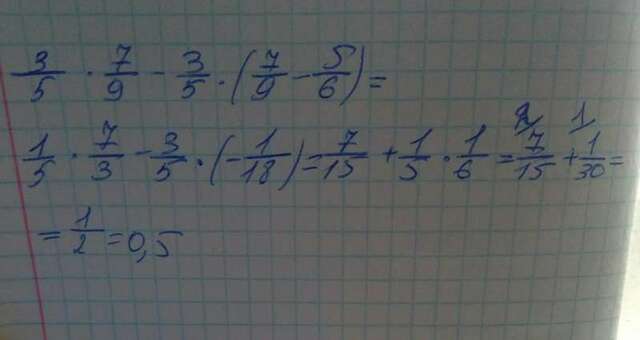 3/5 · 7/9 - 3/5 · (7/9 - 5/6) =
1/5 · 7/3 - 3/5 · (-1/18) = 7/15 + 1/5 · 1/6 = 7/15 + 1/30 =
= 1/2 = 0,5